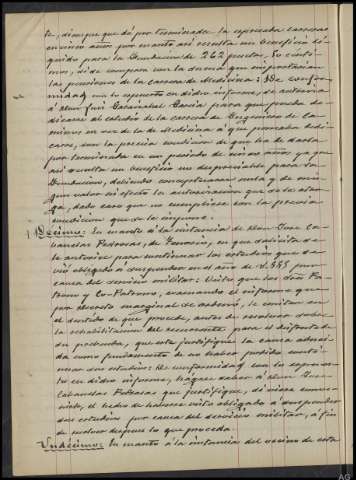 te, siempre que dé por terminada la expresada carrera
en cinco años por cuanto así resulta un beneficio lí-
quido para la Fundacion de 262 pesetas, 50 cénti-
mos, si se compara con la suma que importarían
las pensiones de la carrera de Medicina: De confor-
midad con lo expuesto en dicho informe, se autoriza
á Don Luis Carvajal García para que pueda de-
dicarse al estudio de la carrera de Ingeniero de Ca-
minos en vez de la de Medicina á que pensaba dedi-
carse, con la precisa condicion de que ha de darla
por terminada en un período de cinco años, ya que
así resulta un beneficio no despreciable para la
Fundacion, debiendo conceptuarse nula y de nin-
gun valor ni efecto la autorizacion que se le otor-
ga, dado caso que no cumpliese con la precisa
condicion que se le impone.
Décimo: En cuanto á la instancia de Don José Ca-
banelas Pedrosas, de en que solicita se
le autorice para continuar los estudios que se
vió obligado á suspender en el año de 1.885 por
causa del servicio militar: Visto que los Sres. Pa-
trono y Co-Patrono, evacuando el informe que
por decreto marginal se acordó, le emiten en
el sentido de que procede, antes de resolver sobre
la rehabilitacion del recurrente para el disfrute de
su prebenda, que este justifique la causa aduci-
da como fundamento de no haber podido conti-
nuar sus estudios: De conformidad con lo expues-
to en dicho informe, hágase saber á Don José
Cabanelas Pedrosas que justifique, si viere conve-
nirle, el hecho de haberse visto obligado á suspender
sus estudios por causa del servicio militar, á fin
de resolver despues lo que proceda.
Undécimo: En cuanto á la instancia del vecino de esta
AG